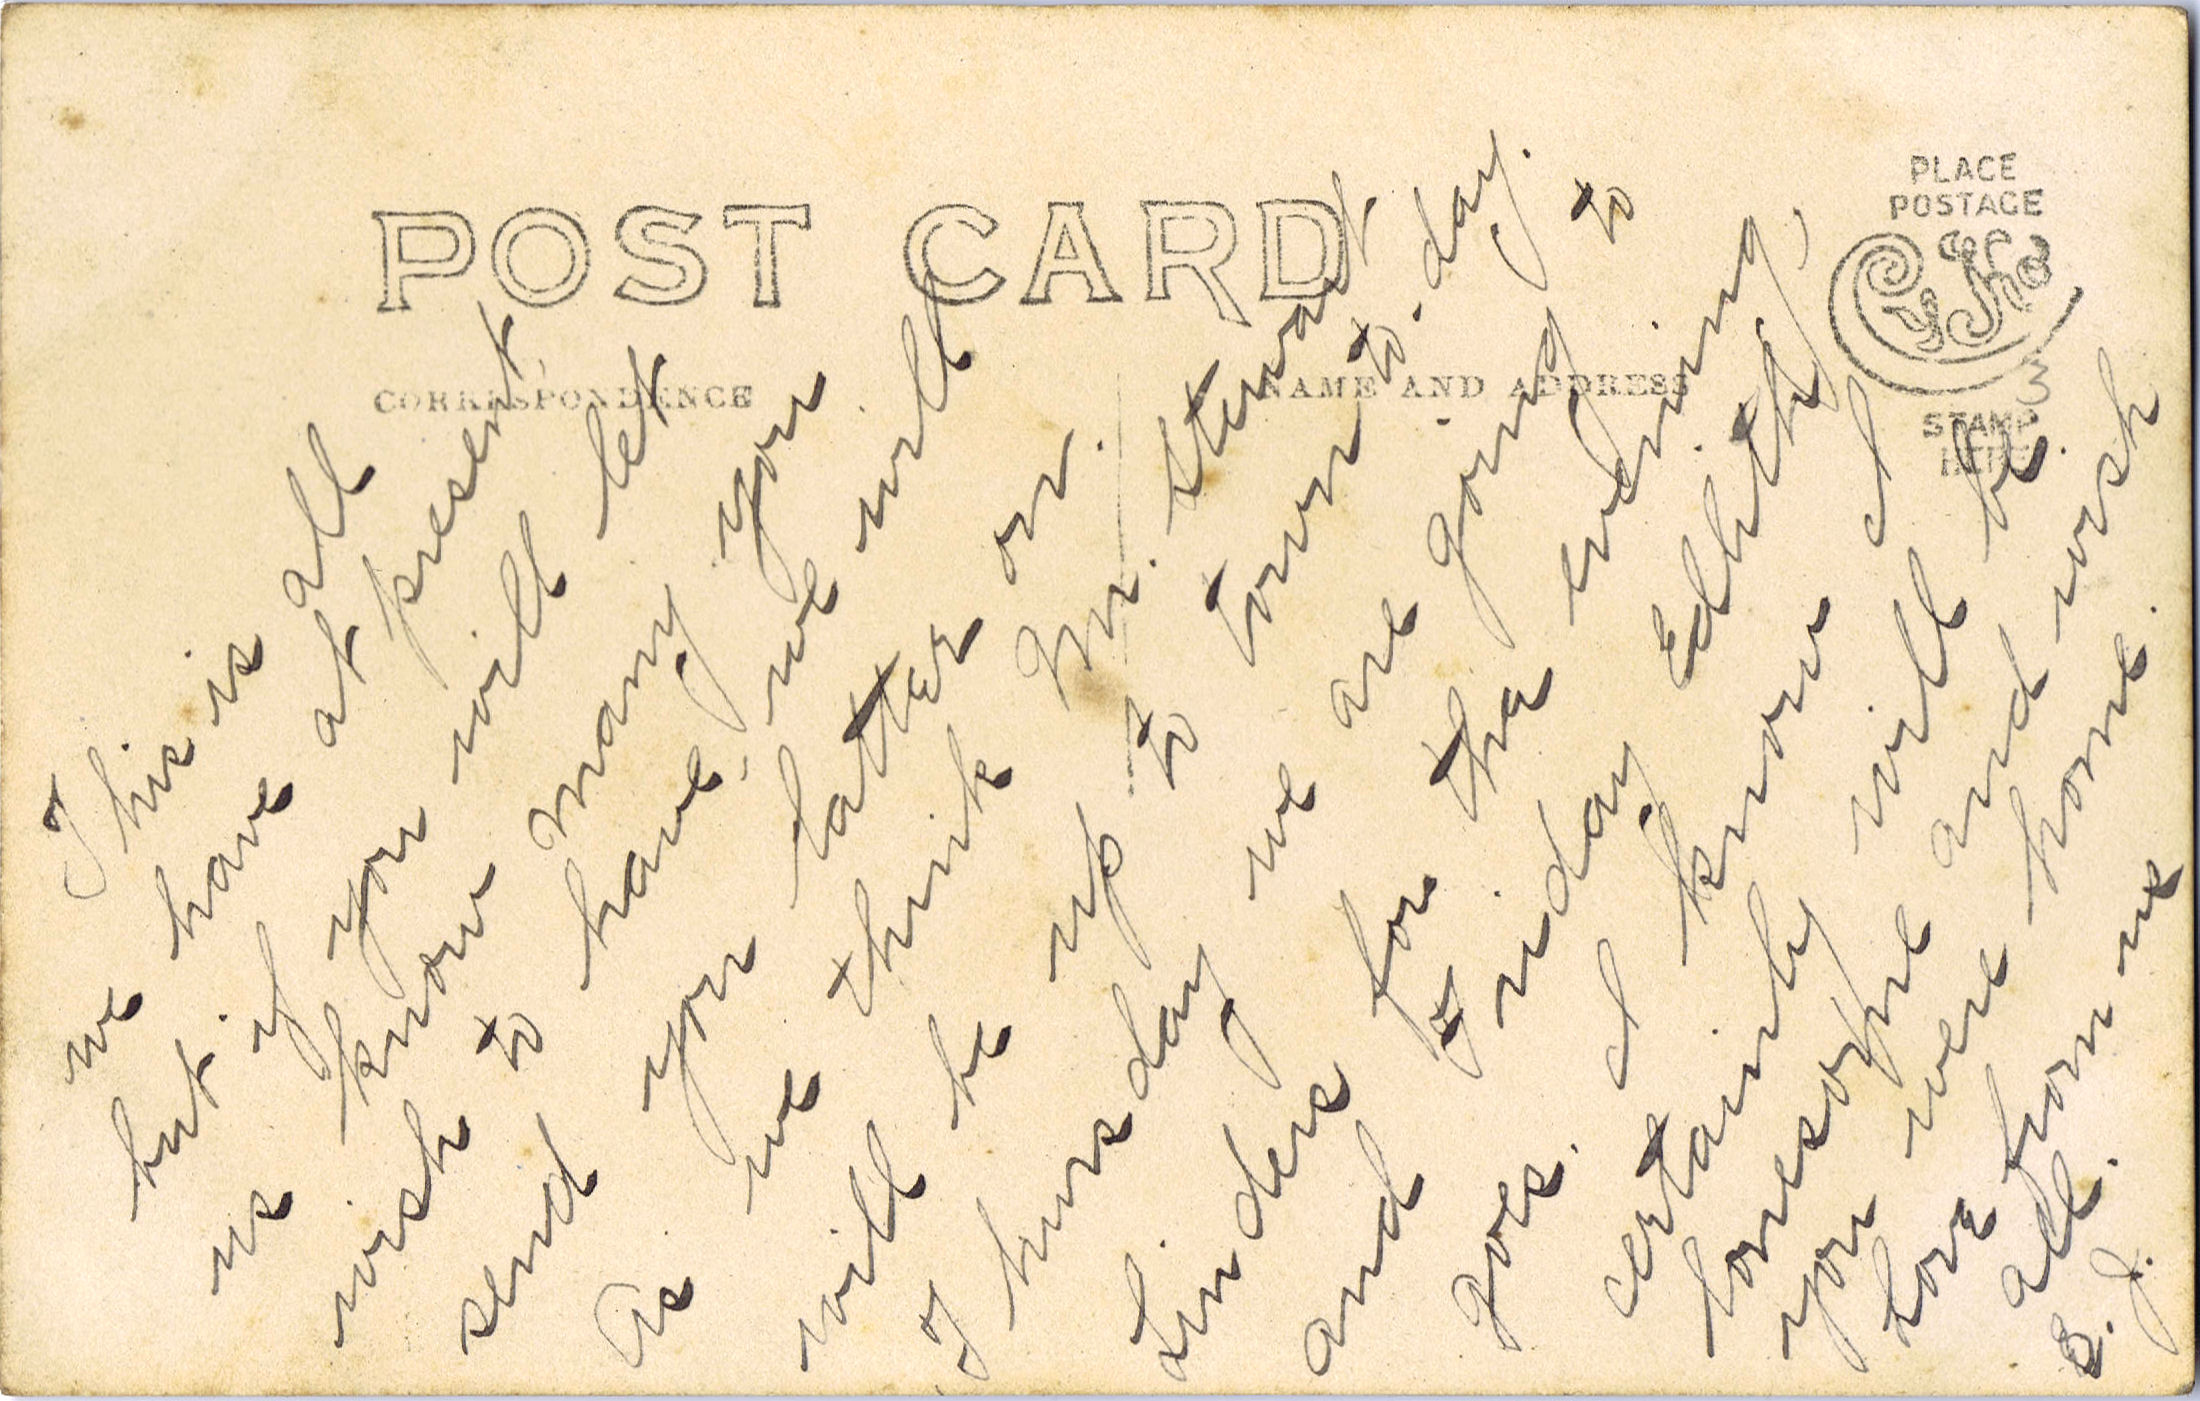 POST CARD
CORRESPONDENCE
NAME AND ADDRESS
PLACE
POSTAGE
STAMP
HERE
This is all
we have at present,
but if you will let
us know many you
wish to have, we will
send you latter on.
As we think Mr. Stewart
will be up to town to-day.
Thursday we are going to
Linders for the evening,
and Friday Edith
goes. I know I
certainly will be
lonesome and wish
you were home.
Love from we
all.
S. J.